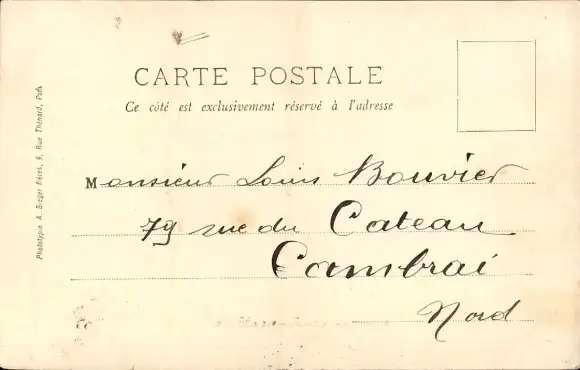 CARTE POSTALE
Ce côté est exclusivement réservé à l'adresse
Monsieur Louis Bouvier
79 rue du Cateau
Cambrai
Nord
Phototypie A. Breger frères, 9, Rue Thénard, Paris